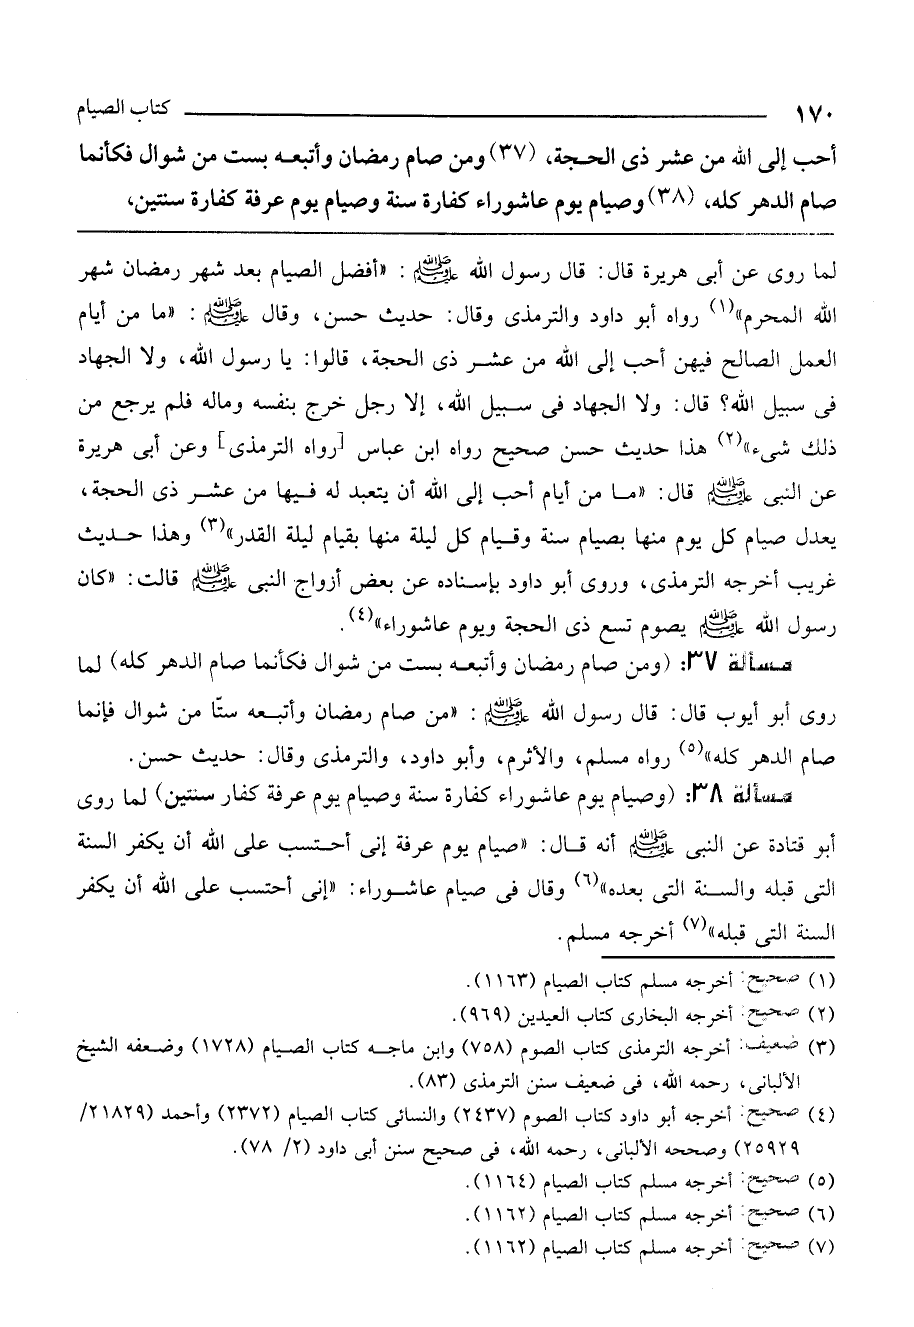 ١٧٠ كتاب الصيام
أحب إلى الله من عشر ذى الحجة، (٣٧) ومن صام رمضان وأتبعه بست من شوال فكأنما
صام الدهر كله، (٣٨) وصيام يوم عاشوراء كفارة سنة وصيام يوم عرفة كفارة سنتين،
لما روى عن أبى هريرة قال: قال رسول الله ﷺ: «أفضل الصيام بعد شهر رمضان شهر
الله المحرم»(١) رواه أبو داود والترمذى وقال: حديث حسن، وقال ﷺ: «ما من أيام
العمل الصالح فيهن أحب إلى الله من عشر ذى الحجة، قالوا: يا رسول الله، ولا الجهاد
فى سبيل الله؟ قال: ولا الجهاد فى سبيل الله، إلا رجل خرج بنفسه وماله فلم يرجع من
ذلك شىء»(٢) هذا حديث حسن صحيح رواه ابن عباس [رواه الترمذى] وعن أبى هريرة
عن النبى ﷺ قال: «ما من أيام أحب إلى الله أن يتعبد له فيها من عشر ذى الحجة،
يعدل صيام كل يوم منها بصيام سنة وقيام كل ليلة منها بقيام ليلة القدر»(٣) وهذا حديث
غريب أخرجه الترمذى، وروى أبو داود بإسناده عن بعض أزواج النبى ﷺ قالت: «كان
رسول الله ﷺ يصوم تسع ذى الحجة ويوم عاشوراء»(٤).
مسألة ٣٧: (ومن صام رمضان وأتبعه بست من شوال فكأنما صام الدهر كله) لما
روى أبو أيوب قال: قال رسول الله ﷺ: «من صام رمضان وأتبعه ستّا من شوال فإنما
صام الدهر كله»(٥) رواه مسلم، والأثرم، وأبو داود، والترمذى وقال: حديث حسن.
مسألة ٣٨: (وصيام يوم عاشوراء كفارة سنة وصيام يوم عرفة كفار سنتين) لما روى
أبو قتادة عن النبى ﷺ أنه قال: «صيام يوم عرفة إنى أحتسب على الله أن يكفر السنة
التى قبله والسنة التى بعده»(٦) وقال فى صيام عاشوراء: «إنى أحتسب على الله أن يكفر
السنة التى قبله»(٧) أخرجه مسلم.
(١) صحيح: أخرجه مسلم كتاب الصيام (١١٦٣).
(٢) صحيح: أخرجه البخارى كتاب العيدين (٩٦٩).
(٣) ضعيف: أخرجه الترمذى كتاب الصوم (٧٥٨) وابن ماجه كتاب الصيام (١٧٢٨) وضعفه الشيخ
الألبانى، رحمه الله، فى ضعيف سنن الترمذى (٨٣).
(٤) صحيح: أخرجه أبو داود كتاب الصوم (٢٤٣٧) والنسائى كتاب الصيام (٢٣٧٢) وأحمد (٢١٨٢٩/
٢٥٩٢٩) وصححه الألبانى، رحمه الله، فى صحيح سنن أبى داود (٢/ ٧٨).
(٥) صحيح: أخرجه مسلم كتاب الصيام (١١٦٤).
(٦) صحيح: أخرجه مسلم كتاب الصيام (١١٦٢).
(٧) صحيح: أخرجه مسلم كتاب الصيام (١١٦٢).